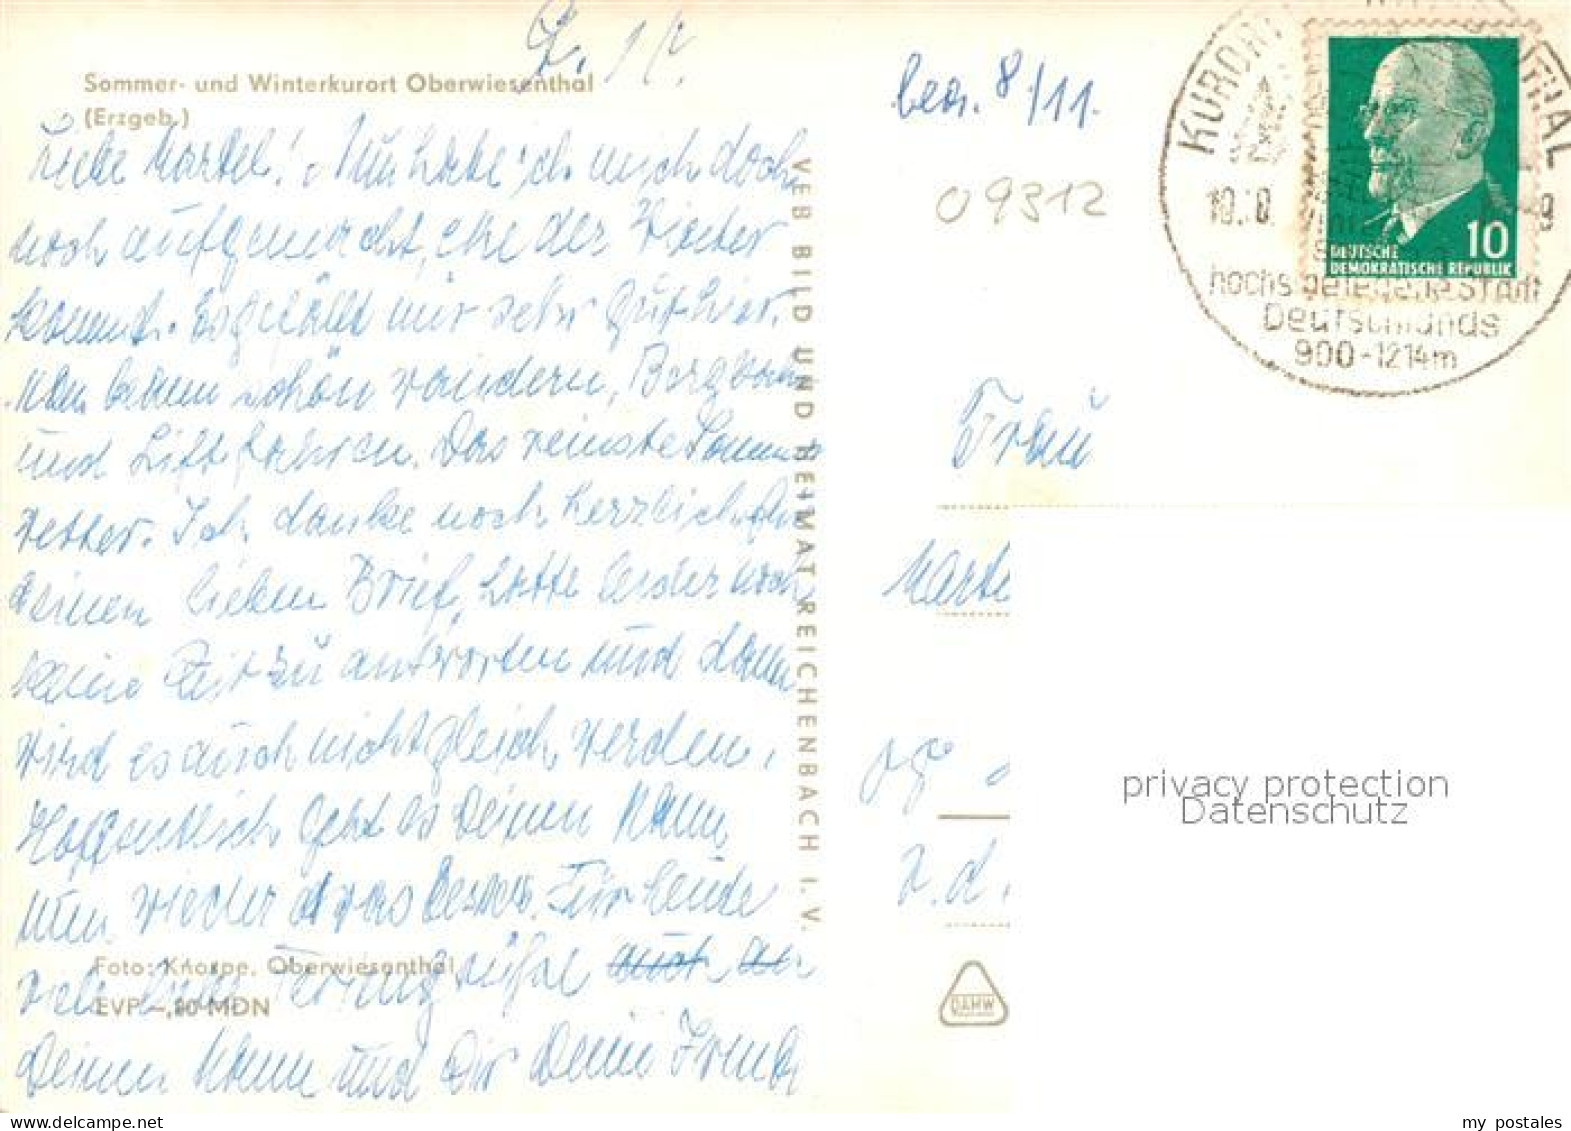 Sommer- und Winterkurort Oberwiesenthal
(Erzgeb.)
Liebe Martel! Nun habe ich mich doch
noch aufgemacht, ehe der Winter
kommt. Es gefällt mir sehr gut hier.
Man kann schön wandern, Bergbahn
und Lift fahren. Das reinste Sommer
wetter. Ich danke noch herzlich für
deinen lieben Brief, hatte leider noch
keine Zeit zu antworten und dann
wird es auch nicht gleich werden.
Hoffentlich geht es Deinem Mann
nun wieder etwas besser. Für heute
viele liebe Feriengrüße auch an
Deinen Mann und Dir Deine
Foto: Knorpe, Oberwiesenthal
EVP -,20 MDN
VEB BILD UND HEIMAT REICHENBACH I. V.
bea. 8/11.
09312
KURORT
THAL
10.
hochstgelegene Stadt
Deutschlands
900-1214m
10
DEUTSCHE
DEMOKRATISCHE REPUBLIK
Frau
Marte
DAMW
privacy protection
Datenschutz
my postales